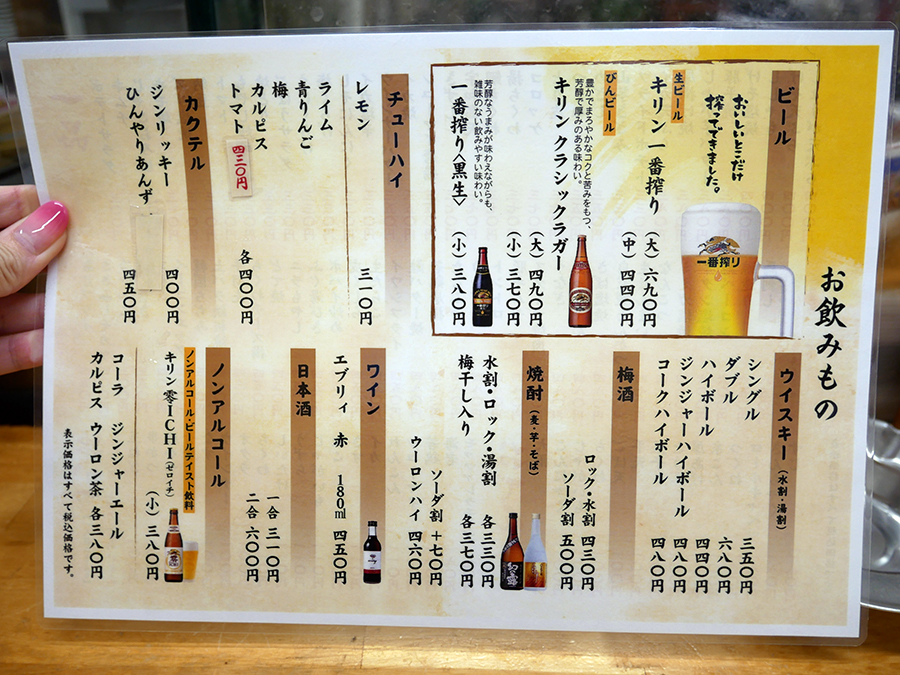 お飲みもの
ビール
おいしいとこだけ
搾ってできました。
生ビール
キリン 一番搾り
(大) 六九〇円
(中) 四四〇円
びんビール
豊かでまろやかなコクと苦みをもつ、
芳醇で厚みのある味わい。
キリン クラシックラガー
(大) 四九〇円
(小) 三七〇円
芳醇なうまみが味わえながらも、
雑味のない飲みやすい味わい。
一番搾り〈黒生〉
(小) 三八〇円
一番搾り
チューハイ
レモン 三一〇円
ライム
青りんご
梅
カルピス
各 四〇〇円
トマト 四三〇円
カクテル
ジンリッキー 四〇〇円
ひんやりあんず 四五〇円
ウイスキー(水割・湯割)
シングル 三五〇円
ダブル 六八〇円
ハイボール 四四〇円
ジンジャーハイボール 四八〇円
コークハイボール 四八〇円
梅酒
ロック・水割 四三〇円
ソーダ割 五〇〇円
焼酎(麦・芋・そば)
水割・ロック・湯割 各三三〇円
梅干し入り 各三七〇円
ソーダ割 +七〇円
ウーロンハイ 四六〇円
ワイン
エブリィ 赤 180ml 四五〇円
日本酒
一合 三一〇円
二合 六〇〇円
ノンアルコール
ノンアルコール・ビールテイスト飲料
キリン零ICHI(ゼロイチ)
(小) 三八〇円
コーラ ジンジャーエール
カルピス ウーロン茶 各三八〇円
表示価格はすべて税込価格です。